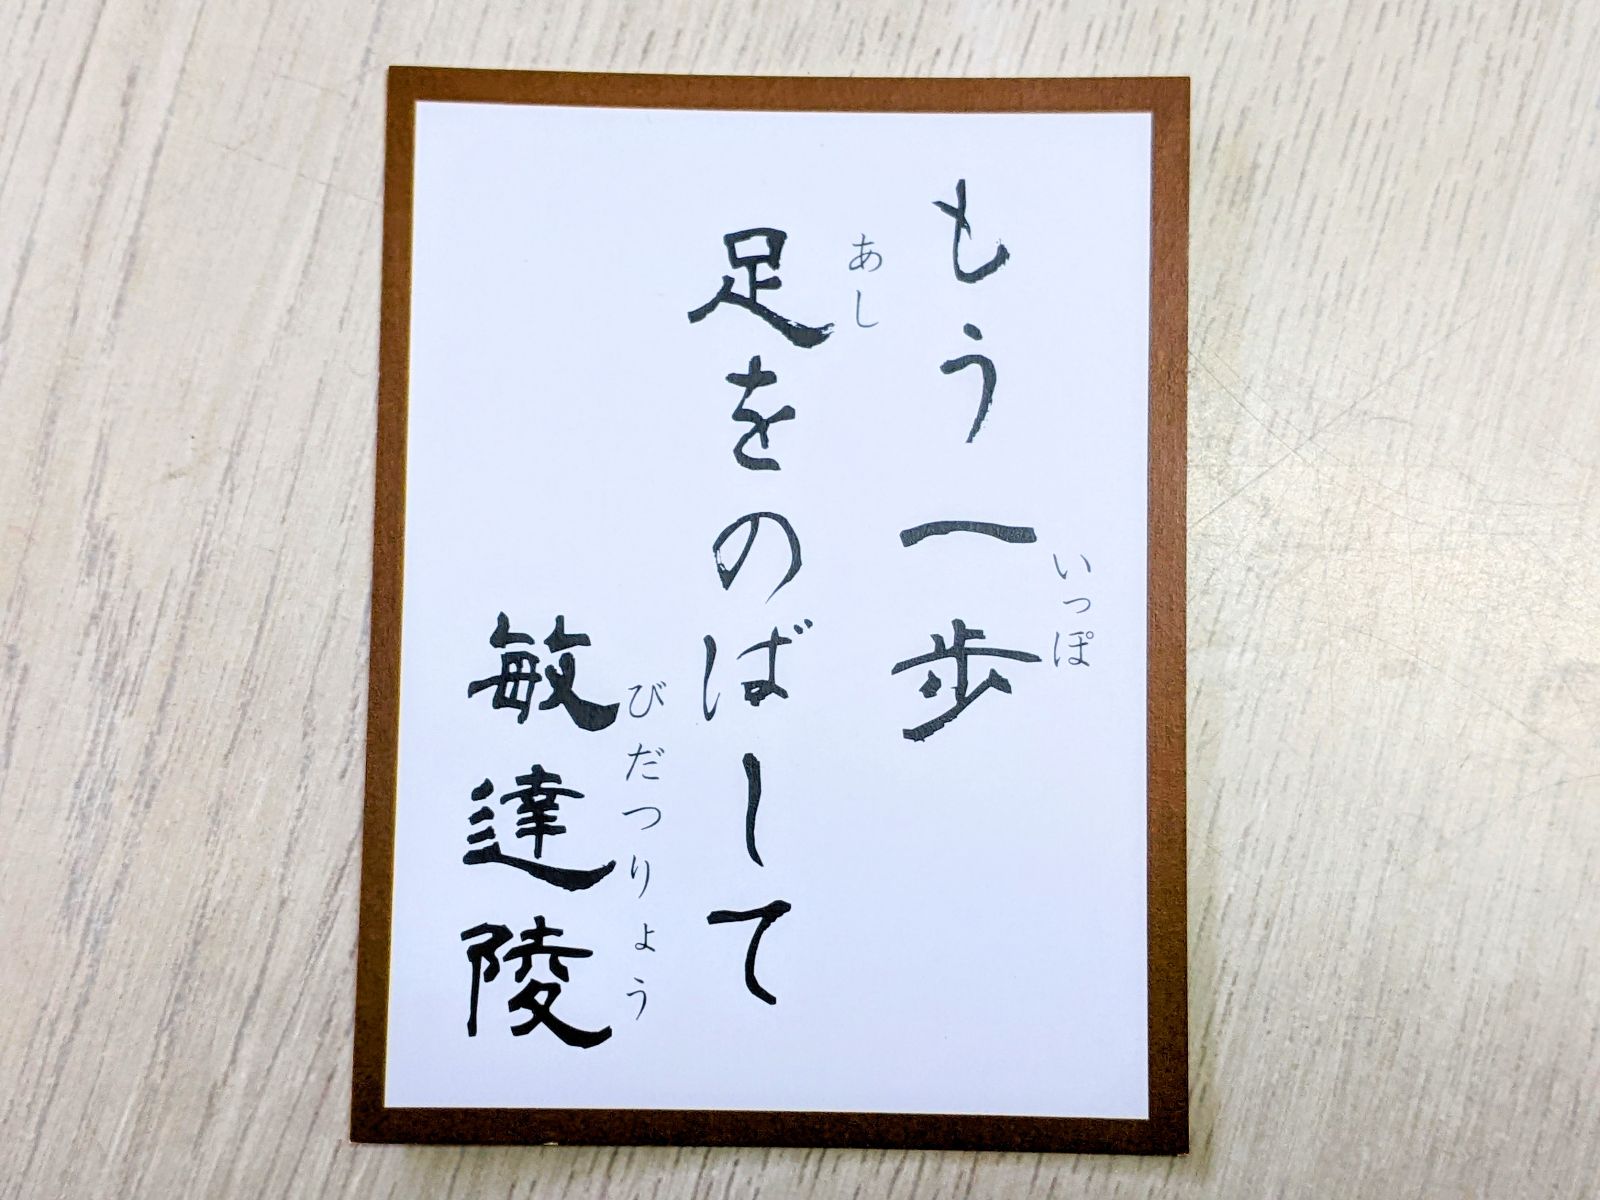 もう一歩
いっぽ
足をのばして
あし
敏達陵
びだつりょう